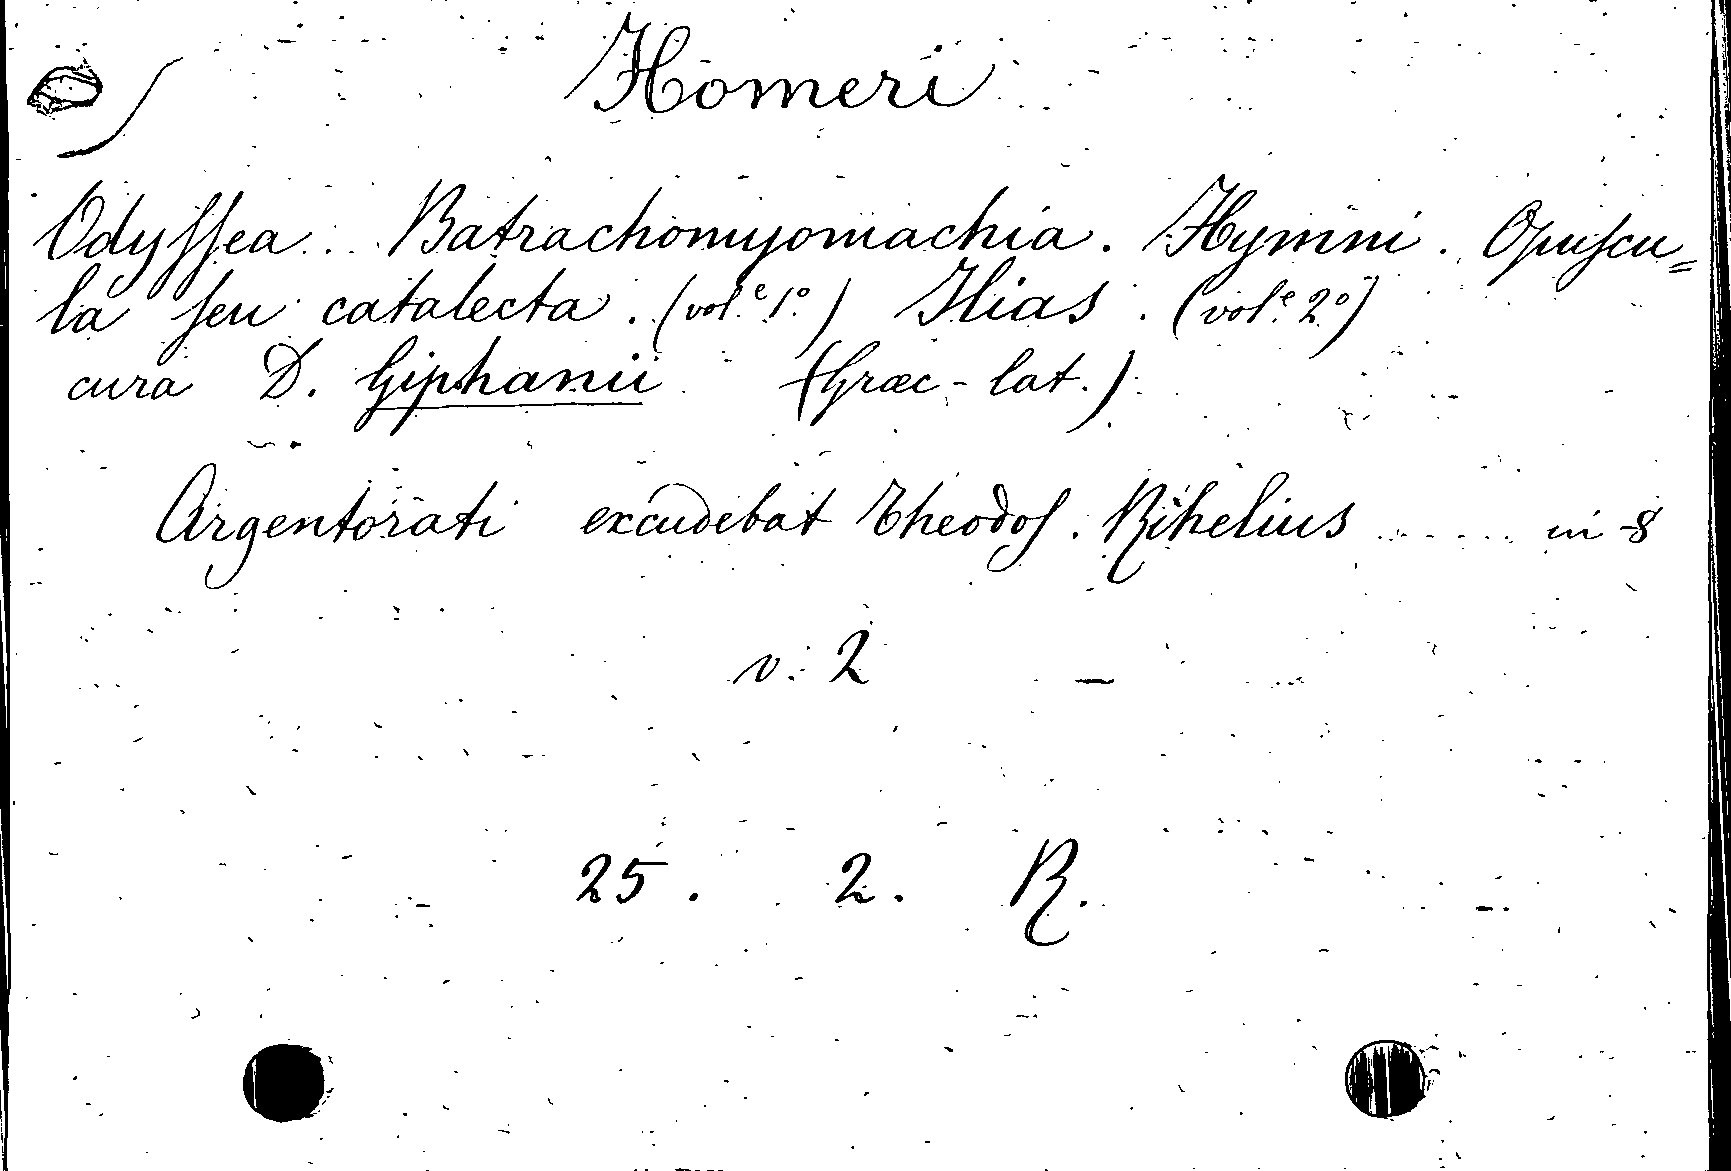 Homeri
Odyſſea. Batrachomyomachia. Hymni. Opuſcu=
la ſeu catalecta. (vol.e 1.o) Ilias. (vol.e 2.o)
cura D. Giphanii (Græc-lat.)
Argentorati excudebat Theodoſ. Rihelius ...... in-8
v. 2 —
25. 2. R.